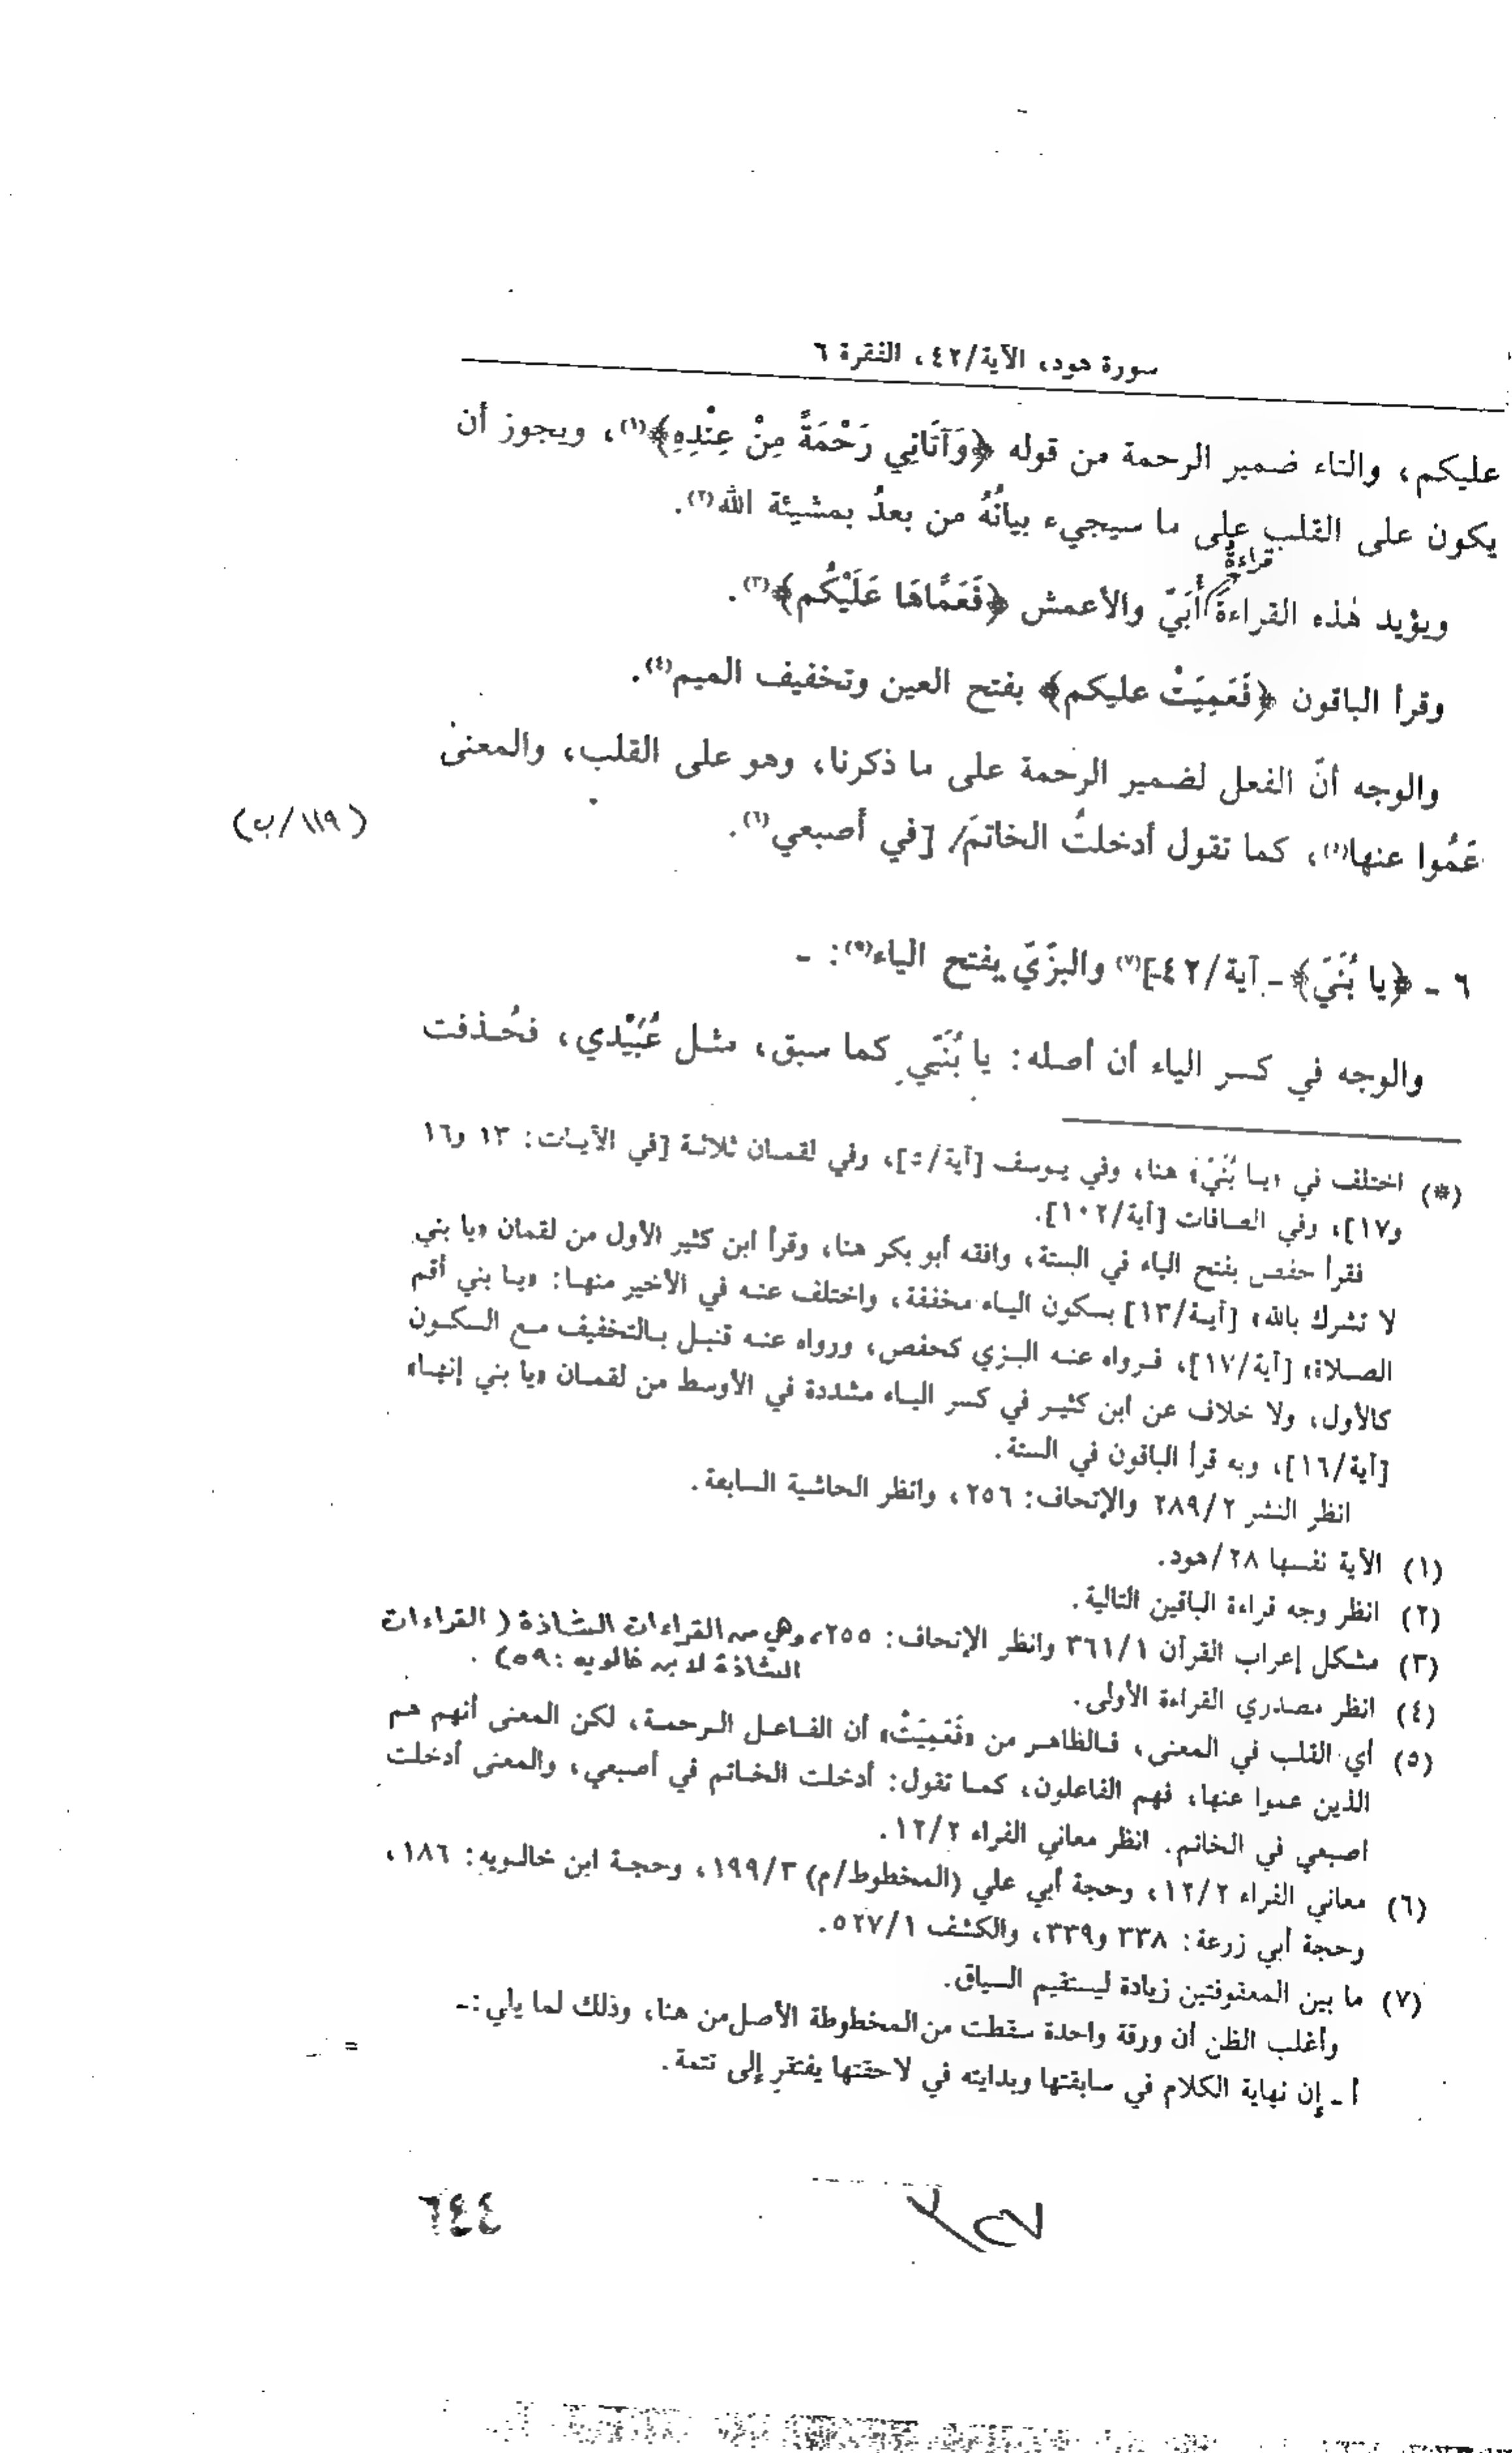 سورة هود، الآية/٤٢، الفقرة ٦
عليكم، والتاء ضمير الرحمة من قوله ﴿وَآتَانِي رَحْمَةً مِنْ عِنْدِهِ﴾(١)، ويجوز أن
يكون على القلب على ما سيجيء بيانُهُ من بعدُ بمشيئة الله(٢).
قراءةُ
ويؤيد هٰذه القراءةَ أُبَيّ والأعمش ﴿فَعَمَّاهَا عَلَيْكُم﴾(٣).
وقرأ الباقون ﴿فَعَمِيَتْ عليكم﴾ بفتح العين وتخفيف الميم(٤).
والوجه أنّ الفعل لضمير الرحمة على ما ذكرنا، وهو على القلب، والمعنىٰ
عَمُوا عنها(٥)، كما تقول أدخلتُ الخاتمَ/ [في أصبعي(٦).
(١١٩/ب)
٦ - ﴿يا بُنَيِّ﴾ - آية/٤٢-](٧) والبزّيّ يفتح الياء(*): -
والوجه في كسر الياء أن أصله: يا بُنَيِّي كما سبق، مثل عُبَيْدي، فحُذفت
(*) اختلف في «يا بُنَيّ» هنا، وفي يوسف [آية/٥]، وفي لقمان ثلاثة [في الآيات: ١٣ و١٦
و١٧]، وفي الصافات [آية/١٠٢].
فقرأ حفص بفتح الياء في الستة، وافقه أبو بكر هنا، وقرأ ابن كثير الأول من لقمان «يا بني
لا تشرك بالله» [آية/١٣] بسكون الياء مخففة، واختلف عنه في الأخير منها: «يا بني أقم
الصلاة» [آية/١٧]، فرواه عنه البزي كحفص، ورواه عنه قنبل بالتخفيف مع السكون
كالأول، ولا خلاف عن ابن كثير في كسر الياء مشددة في الأوسط من لقمان «يا بني إنها»
[آية/١٦]، وبه قرأ الباقون في الستة.
انظر النشر ٢٨٩/٢ والإتحاف: ٢٥٦، وانظر الحاشية السابعة.
(١) الآية نفسها ٢٨/هود.
(٢) انظر وجه قراءة الباقين التالية.
(٣) مشكل إعراب القرآن ٣٦١/١ وانظر الإتحاف: ٢٥٥، وهي من القراءات الشاذة ( القراءات
الشاذة لابن خالويه : ٥٩) .
(٤) انظر مصدري القراءة الأولى.
(٥) أي القلب في المعنى، فالظاهر من «فَعَمِيَتْ» أن الفاعل الرحمة، لكن المعنى أنهم هم
الذين عموا عنها، فهم الفاعلون، كما تقول: أدخلت الخاتم في أصبعي، والمعنى أدخلت
اصبعي في الخاتم. انظر معاني الفراء ١٢/٢.
(٦) معاني الفراء ١٢/٢، وحجة أبي علي (المخطوط/م) ١٩٩/٣، وحجة ابن خالويه: ١٨٦،
وحجة أبي زرعة: ٣٣٨ و٣٣٩، والكشف ٥٢٧/١.
(٧) ما بين المعقوفتين زيادة ليستقيم السياق.
وأغلب الظن أن ورقة واحدة سقطت من المخطوطة الأصل من هنا، وذلك لما يلي: -
أ - إن نهاية الكلام في سابقتها وبدايته في لاحقتها يفتقر إلى تتمة.
=
٦٤٤